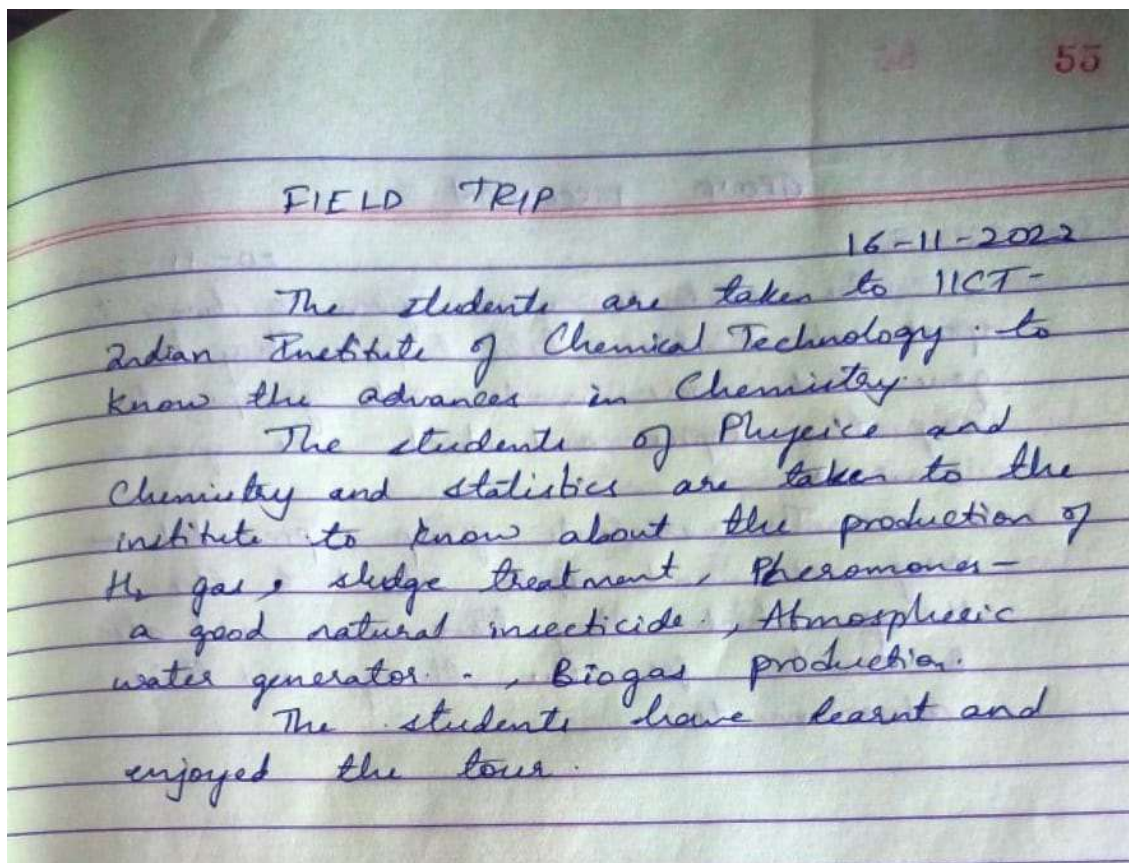 55
FIELD TRIP
16-11-2022
The students are taken to IICT-
Indian Institute of Chemical Technology. to
know the advances in Chemistry.
The students of Physics and
Chemistry and statistics are taken to the
institute to know about the production of
H₂ gas, sludge treatment, Pheromones-
a good natural insecticide., Atmospheric
water generator. - , Biogas production.
The students have learnt and
enjoyed the tour.